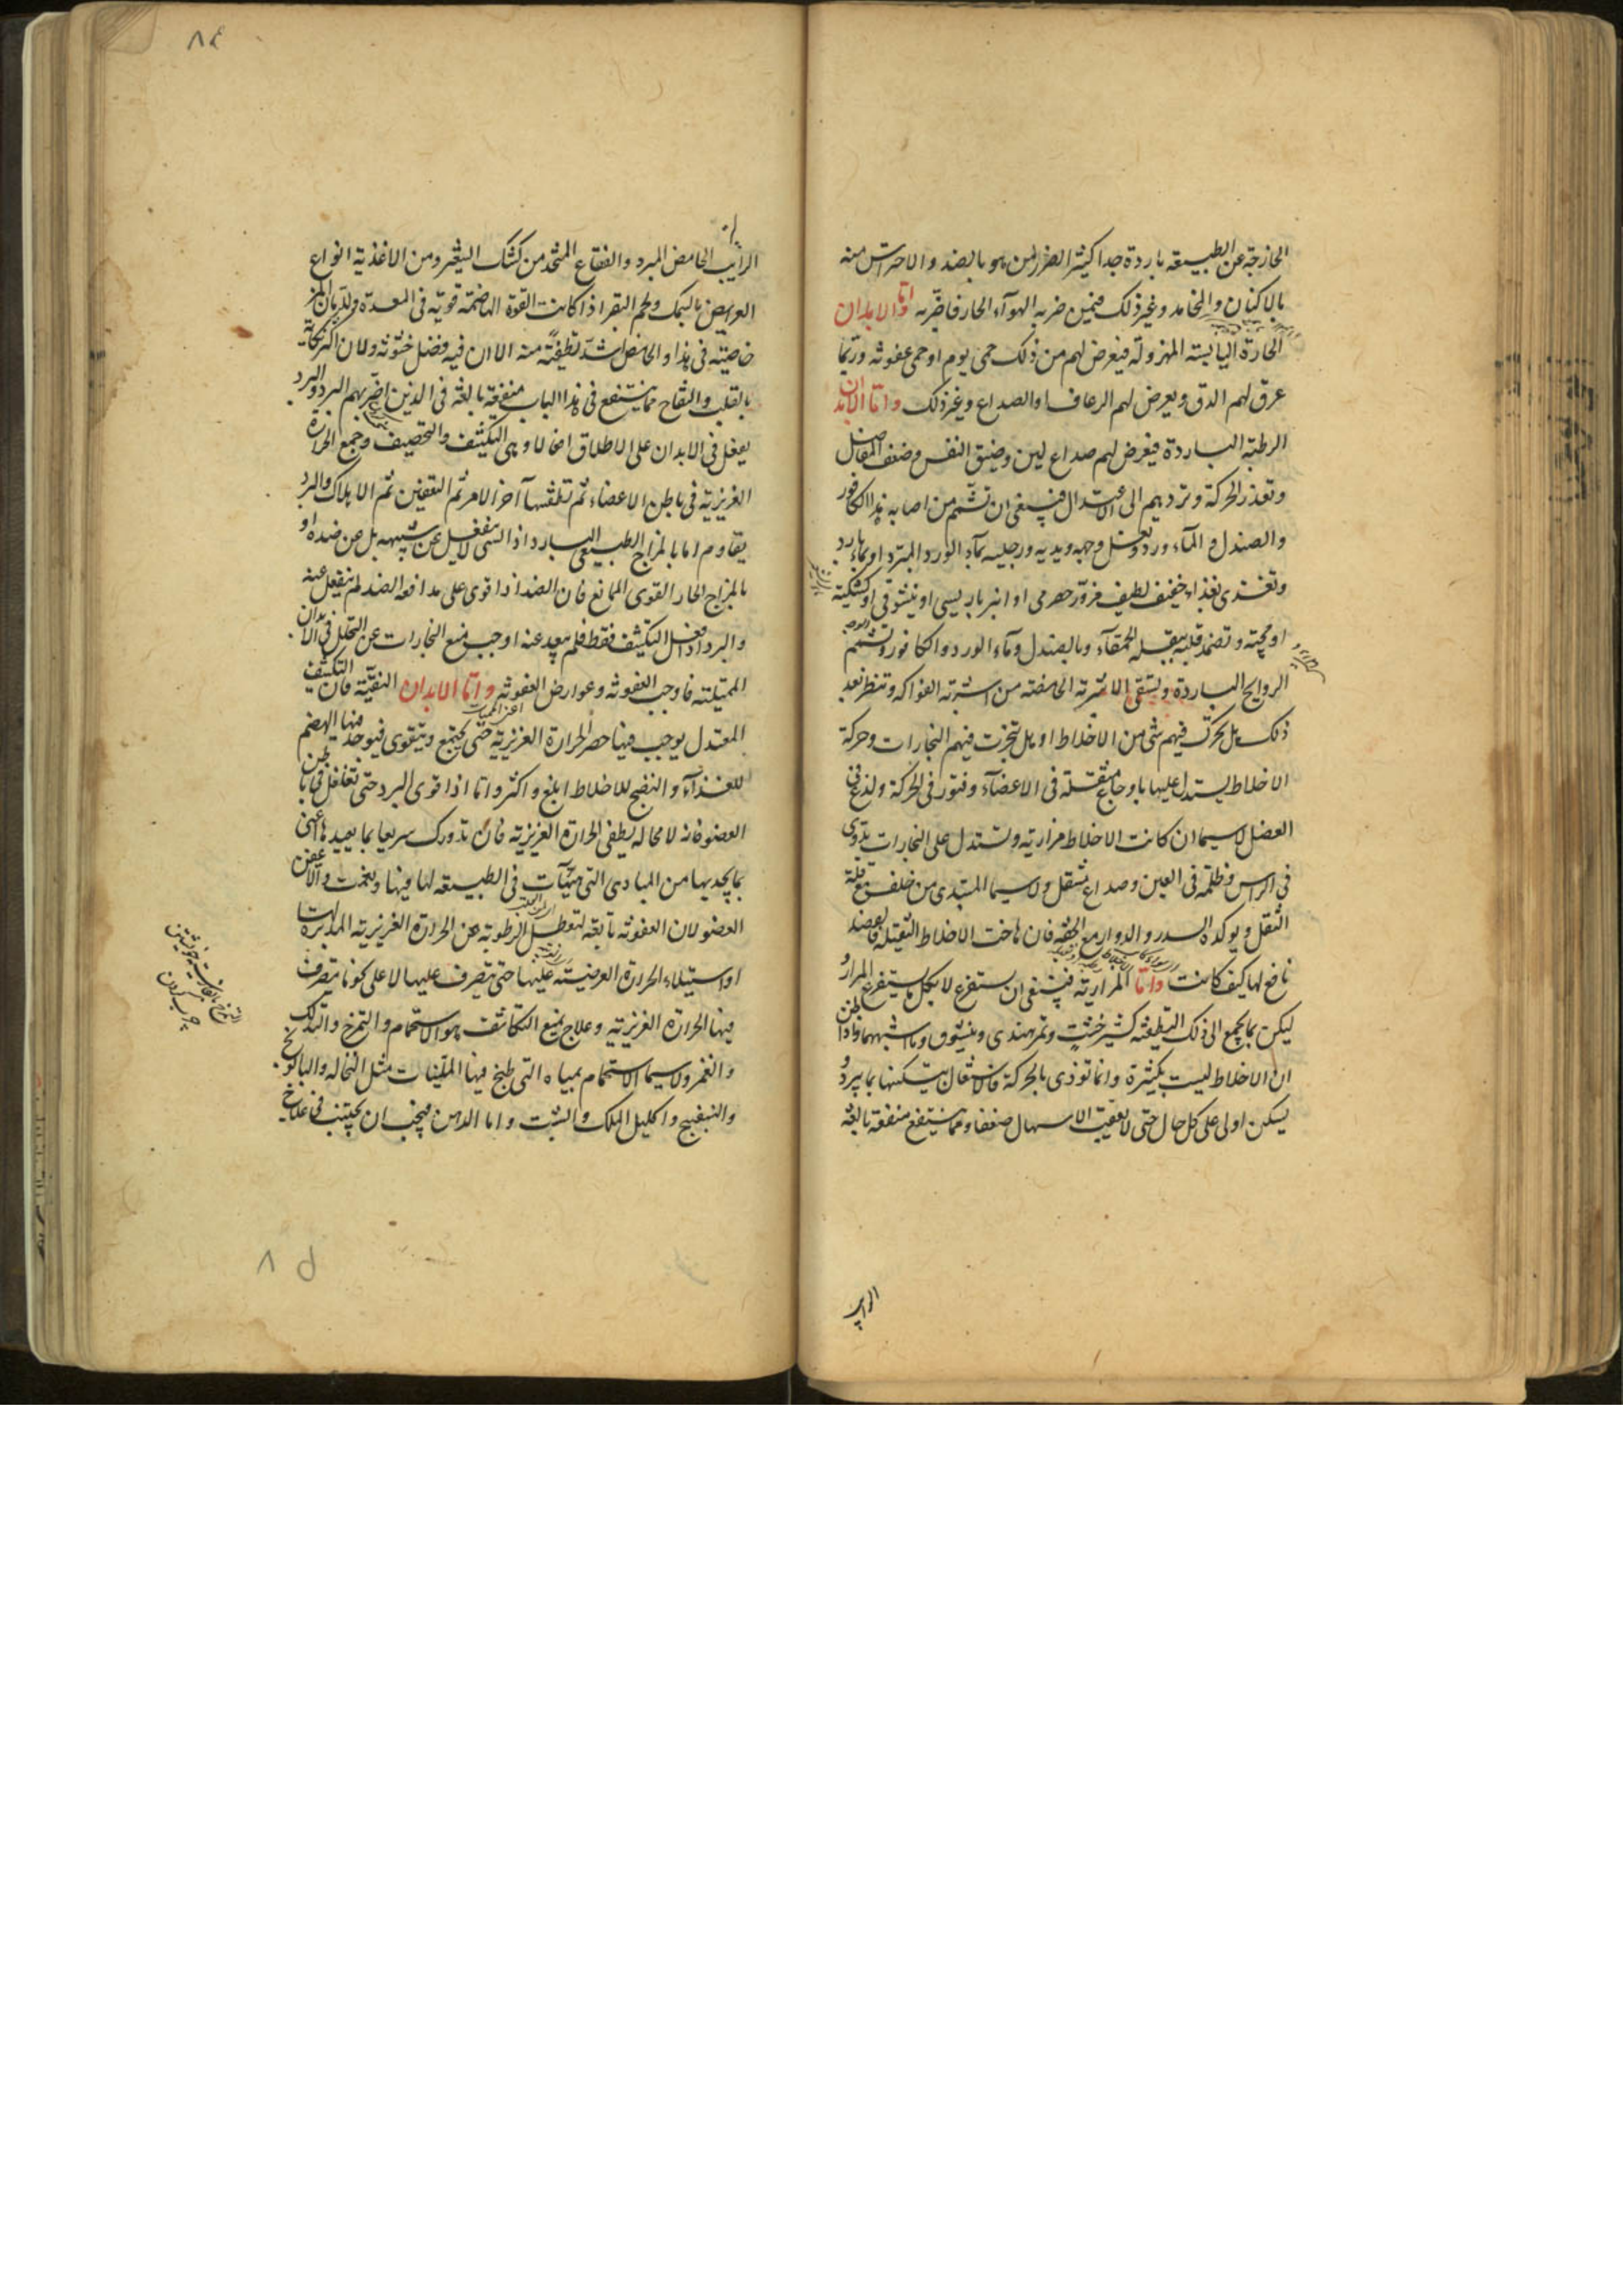 الخارجة عن الطبيعة باردة جدا كثير الضرر لمن هو بالضد والاحتراس منه
بالاكنان و وغير ذلك فيمن ضربه الهوآء الحار فاضربه واما الابدان
الحارة اليابسة المهزولة فيعرض لهم من ذلك حمى يوم او حمى عفونة وربما
عرق لهم الدق ويعرض لهم الرعاف والصداع وغير ذلك واما الابدان
الرطبة الباردة فيعرض لهم صداع لين وضيق النفس وضعف المفاصل
وتعذر الحركة وتردهم الى الاعتدال فينبغى ان تشمم من اصابه هذا الكافور
والصندل و المآء ورد وتغسل وجهه ويديه ورجليه بمآء الورد المبرد او بمآء بارد
وتغذى بغذاء خفيف لطيف مزورة حصرمى او انبرباريسى او نيشوقى او كشكية
او مجية وتضمد قلبه ببقلة الحمقآء وبالصندل ومآء الورد والكافور وتشمم
الروايح الباردة ويسقى الاشربة الحامضة من اشربة الفواكه وتنظر بعد
ذلك هل تحرك فيهم شى من الاخلاط او هل تبخرت فيهم البخارات وحركة
الاخلاط يستدل عليها باوجاع متنقلة فى الاعضآء وفتور فى الحركة ولذع فى
العضل لاسيما ان كانت الاخلاط مرارية وتستدل على البخارات بدوى
فى الراس وظلمة فى العين وصداع مثقل ولاسيما المبتدى من خلف مع قلة
الثقل ويوكده السدر والدوار مع الخفة فان هاجت الاخلاط الثقيلة فالفصد
نافع لها كيف كانت واما المرارية فينبغى ان يستفرغ لا بكل ما يستفرغ المرار و
ليكن بما يجمع الى ذلك التطفية كشيرخشت وتمر هندى ونيشوق وما اشبههما واذا ظن
ان الاخلاط ليست بكثيرة وانما توذى بالحركة فالاشتغال بتسكينها بما يبرد و
يسكن اولى على كل حال حتى لا يعقب الاسهال ضعفا ومما ينتفع منفعة بالغة
الرايب
٨٤
الرايب الحامض المبرد والفقاع المتخذ من كشك الشعير ومن الاغذية انواع
القريص بالسمك ولحم البقر اذا كانت القوة الهاضمة قوية فى المعدة وللرمان المز
خاصية فى هذا والحامض اشد تطفية منه الا ان فيه فضل خشونة ولان اكثر نكاية
بالقلب والتفاح مما ينتفع فى هذا الباب منفعة بالغة فى الذين اضر بهم البرد والبرد
يفعل فى الابدان على الاطلاق افعالا وهى التكثيف والتحصيف وجمع الحرارة
الغريزية فى باطن الاعضاء ثم تطفيها آخر الامر ثم التعفين ثم الاهلاك والبرد
يقاوم اما بالمزاج الطبيعى البارد اذ الشى لا ينفعل عن شبيهه بل عن ضده او
بالمزاج الحار القوى المانع فان الضد اذا قوى على مدافعة الضد لم ينفعل عنه
والبرد اذا فعل التكثيف فقط فلم يعد عنه اوجب منع البخارات عن التحلل فى الابدان
الممتلئة فاوجب العفونة وعوارض العفونة واما الابدان النقية فان التكثيف
اعنى الحميات
المعتدل يوجب فيها حصر الحرارة الغريزية حتى يجتمع ويتقوى فيوجد فيها الهضم
للغذآء والنضج للاخلاط ابلغ واكثر واما اذا قوى البرد حتى تغلغل فى باطن
العضو فانه لا محالة يطفى الحرارة الغريزية فان تدورك سريعا بما يعيدها اعنى
بما يجذبها من المبادى التى تهيأت فى الطبيعة لها فيها ونعمت والا عفن
العضو لان العفونة تابعة لتعطل الرطوبة عن الحرارة الغريزية المدبرة لها
او استيلاء الحرارة الغريبة عليها حتى يتصرف عليها لا على كونا يتصرف
فيها الحرارة الغريزية وعلاج منع التكاثف هو الاستحمام والتمرخ والتدلك
والغمز ولاسيما الاستحمام بمياه التى طبخ فيها الملينات مثل النخاله والبابونج
والبنفسج واكليل الملك والشبت واما الدهن فيجب ان يجتنب فى علاج
٨٥